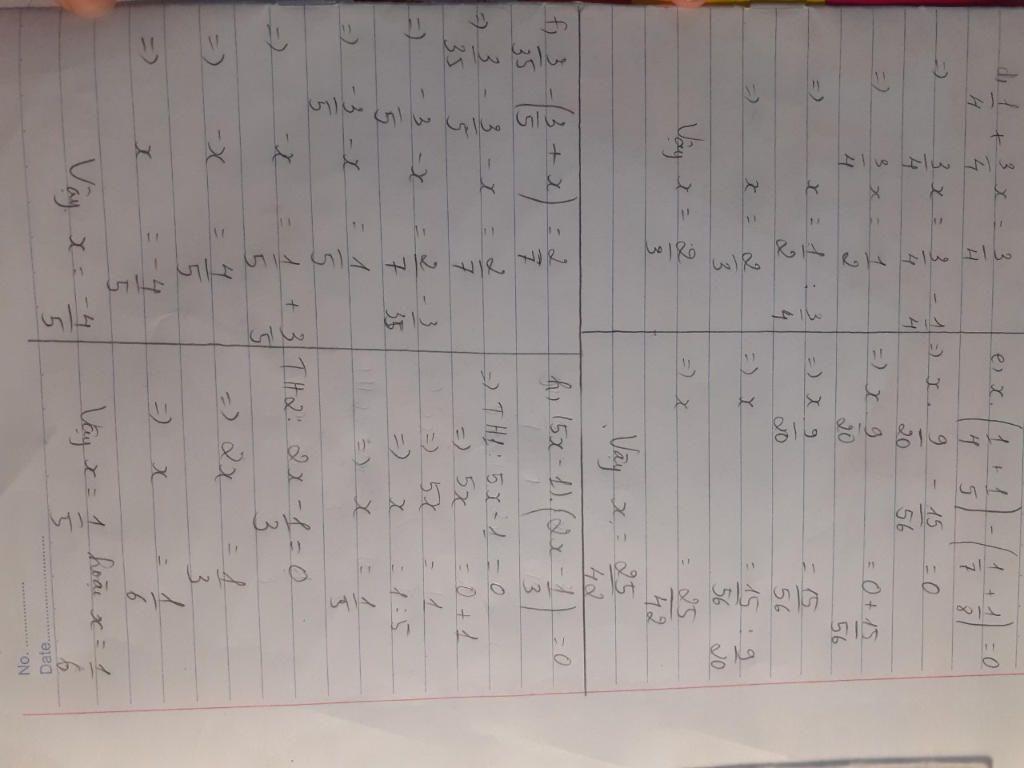 d, 1/4 + 3/4 x = 3/4
=) 3/4 x = 3/4 - 1/4
=) 3/4 x = 1/2
=) x = 1/2 : 3/4
=) x = 2/3
Vậy x = 2/3
e, x . (1/4 + 1/5) - (1/7 + 1/8) = 0
=) x . 9/20 - 15/56 = 0
=) x . 9/20 = 0 + 15/56
=) x . 9/20 = 15/56
=) x = 15/56 : 9/20
=) x = 25/42
Vậy x = 25/42
f, 3/35 - (3/5 + x) = 2/7
=) 3/35 - 3/5 - x = 2/7
=) - 3/5 - x = 2/7 - 3/35
=) - 3/5 - x = 1/5
=) - x = 1/5 + 3/5
=) - x = 4/5
=) x = - 4/5
Vậy x = - 4/5
h, (5x - 1) (2x - 1/3) = 0
=) TH1: 5x - 1 = 0
=) 5x = 0 + 1
=) 5x = 1
=) x = 1 : 5
=) x = 1/5
TH2: 2x - 1/3 = 0
=) 2x = 1/3
=) x = 1/6
Vậy x = 1/5 hoặc x = 1/6
No.
Date